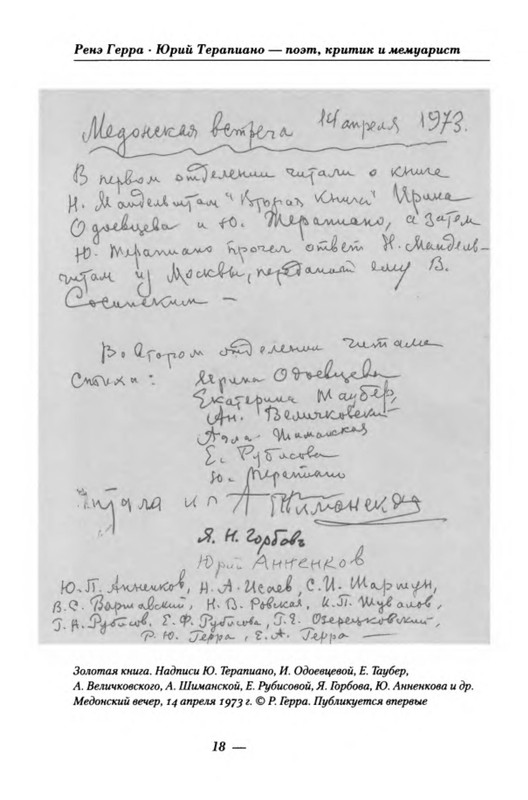 Ренэ Герра · Юрий Терапиано — поэт, критик и мемуарист
Медонская встреча 14 апреля 1973.
В первом отделении читали о книге
Н. Мандельштам "Вторая книга" Ирина
Одоевцева и Ю. Терапиано, а затем
Ю. Терапиано прочел ответ Н. Мандель-
штам из Москвы, переданный ему В.
Сосинским —
Во втором отделении читали
стихи: Ирина Одоевцева
Екатерина Таубер,
Ан. Величковский
Аглая Шиманская
Е. Рубисова
Ю. Терапиано
читала и я А Шиманская
Я. Н. Горбовъ
Юрий Анненков
Ю. П. Анненков, Н. А. Исаев, С. И. Шаршун,
В. С. Варшавский, Н. В. Ровская, К. П. Шувалов,
Г. А. Рубисов, Е. Ф. Рубисова, Г. Е. Озерецковский,
Р. Ю. Герра, Е. А. Герра —
Золотая книга. Надписи Ю. Терапиано, И. Одоевцевой, Е. Таубер,
А. Величковского, А. Шиманской, Е. Рубисовой, Я. Горбова, Ю. Анненкова и др.
Медонский вечер, 14 апреля 1973 г. © Р. Герра. Публикуется впервые
18 —